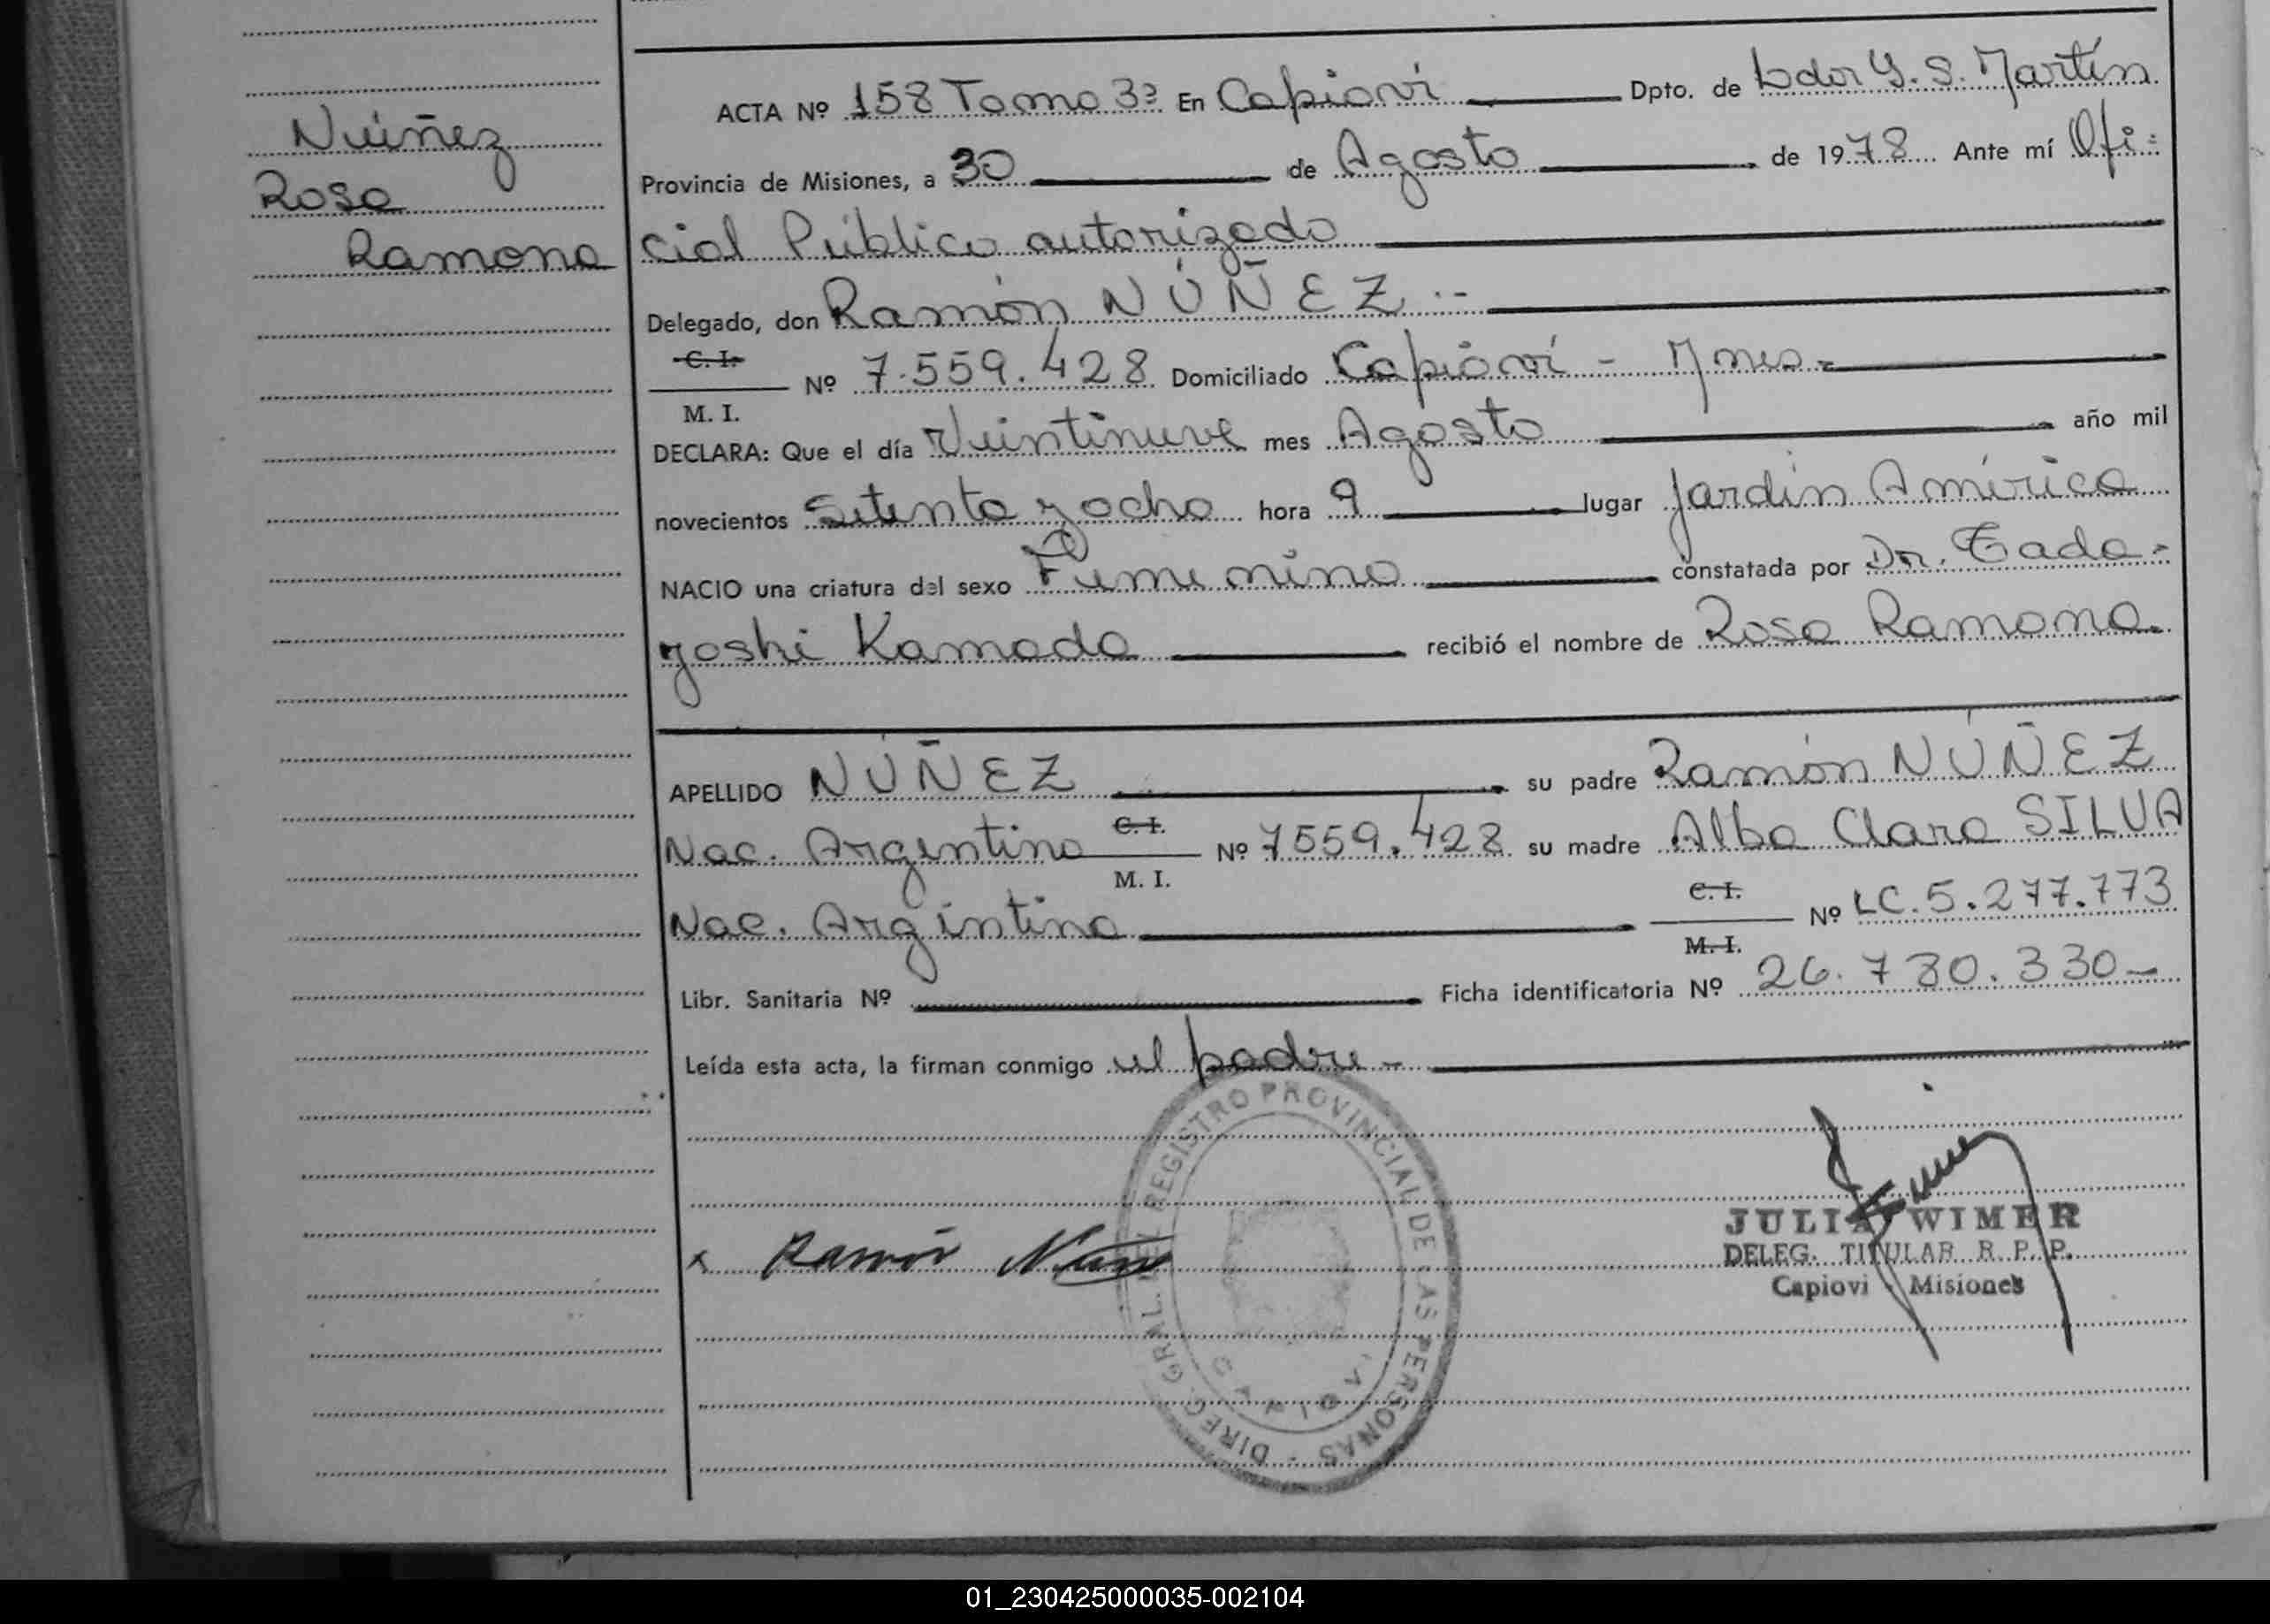 Núñez
Rosa
Ramona
ACTA Nº 158 Tomo 3º En Capioví Dpto. de Ldor G. S. Martín
Provincia de Misiones, a 30 de Agosto de 1978. Ante mí Ofi=
cial Público autorizado
Delegado, don Ramón NÚÑEZ.--
C. I.
Nº 7.559.428 Domiciliado Capioví - Mnes.-
M. I.
DECLARA: Que el día Veintinueve mes Agosto año mil
novecientos Setenta y ocho hora 9 lugar Jardín América
NACIO una criatura del sexo Femenino constatada por Dr. Tada-
yoshi Kamada recibió el nombre de Rosa Ramona.
APELLIDO NÚÑEZ su padre Ramón NÚÑEZ
Nac. Argentina C. I. Nº 7559.428 su madre Alba Clara SILVA
M. I.
Nac. Argentina C. I. Nº LC. 5.277.773
M. I.
Libr. Sanitaria Nº Ficha identificatoria Nº 26.730.330-
Leída esta acta, la firman conmigo el padre-
DIREC. GRAL. DEL REGISTRO PROVINCIAL DE LAS PERSONAS -
CAPIOVI
x Ramón
JULIA WIMER
DELEG. TITULAR R. P. P.
Capiovi - Misiones
01_230425000035-002104